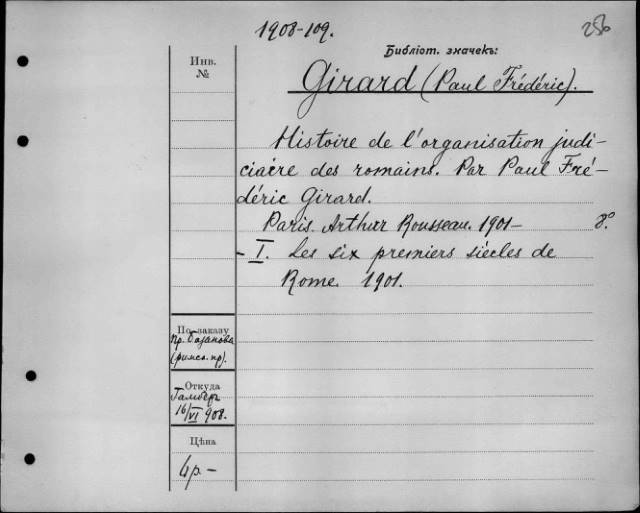 1908-109.
256
Библіот. значекъ:
Инв.
№
Girard (Paul Frédéric).
Histoire de l'organisation judi-
ciaire des romains. Par Paul Fré-
déric Girard.
Paris. Arthur Rousseau. 1901- 8°
- I. Les six premiers siècles de
Rome. 1901.
По заказу
пр. Базанова
(римск. пр).
Откуда
16/VI 908.
Цѣна
4р-